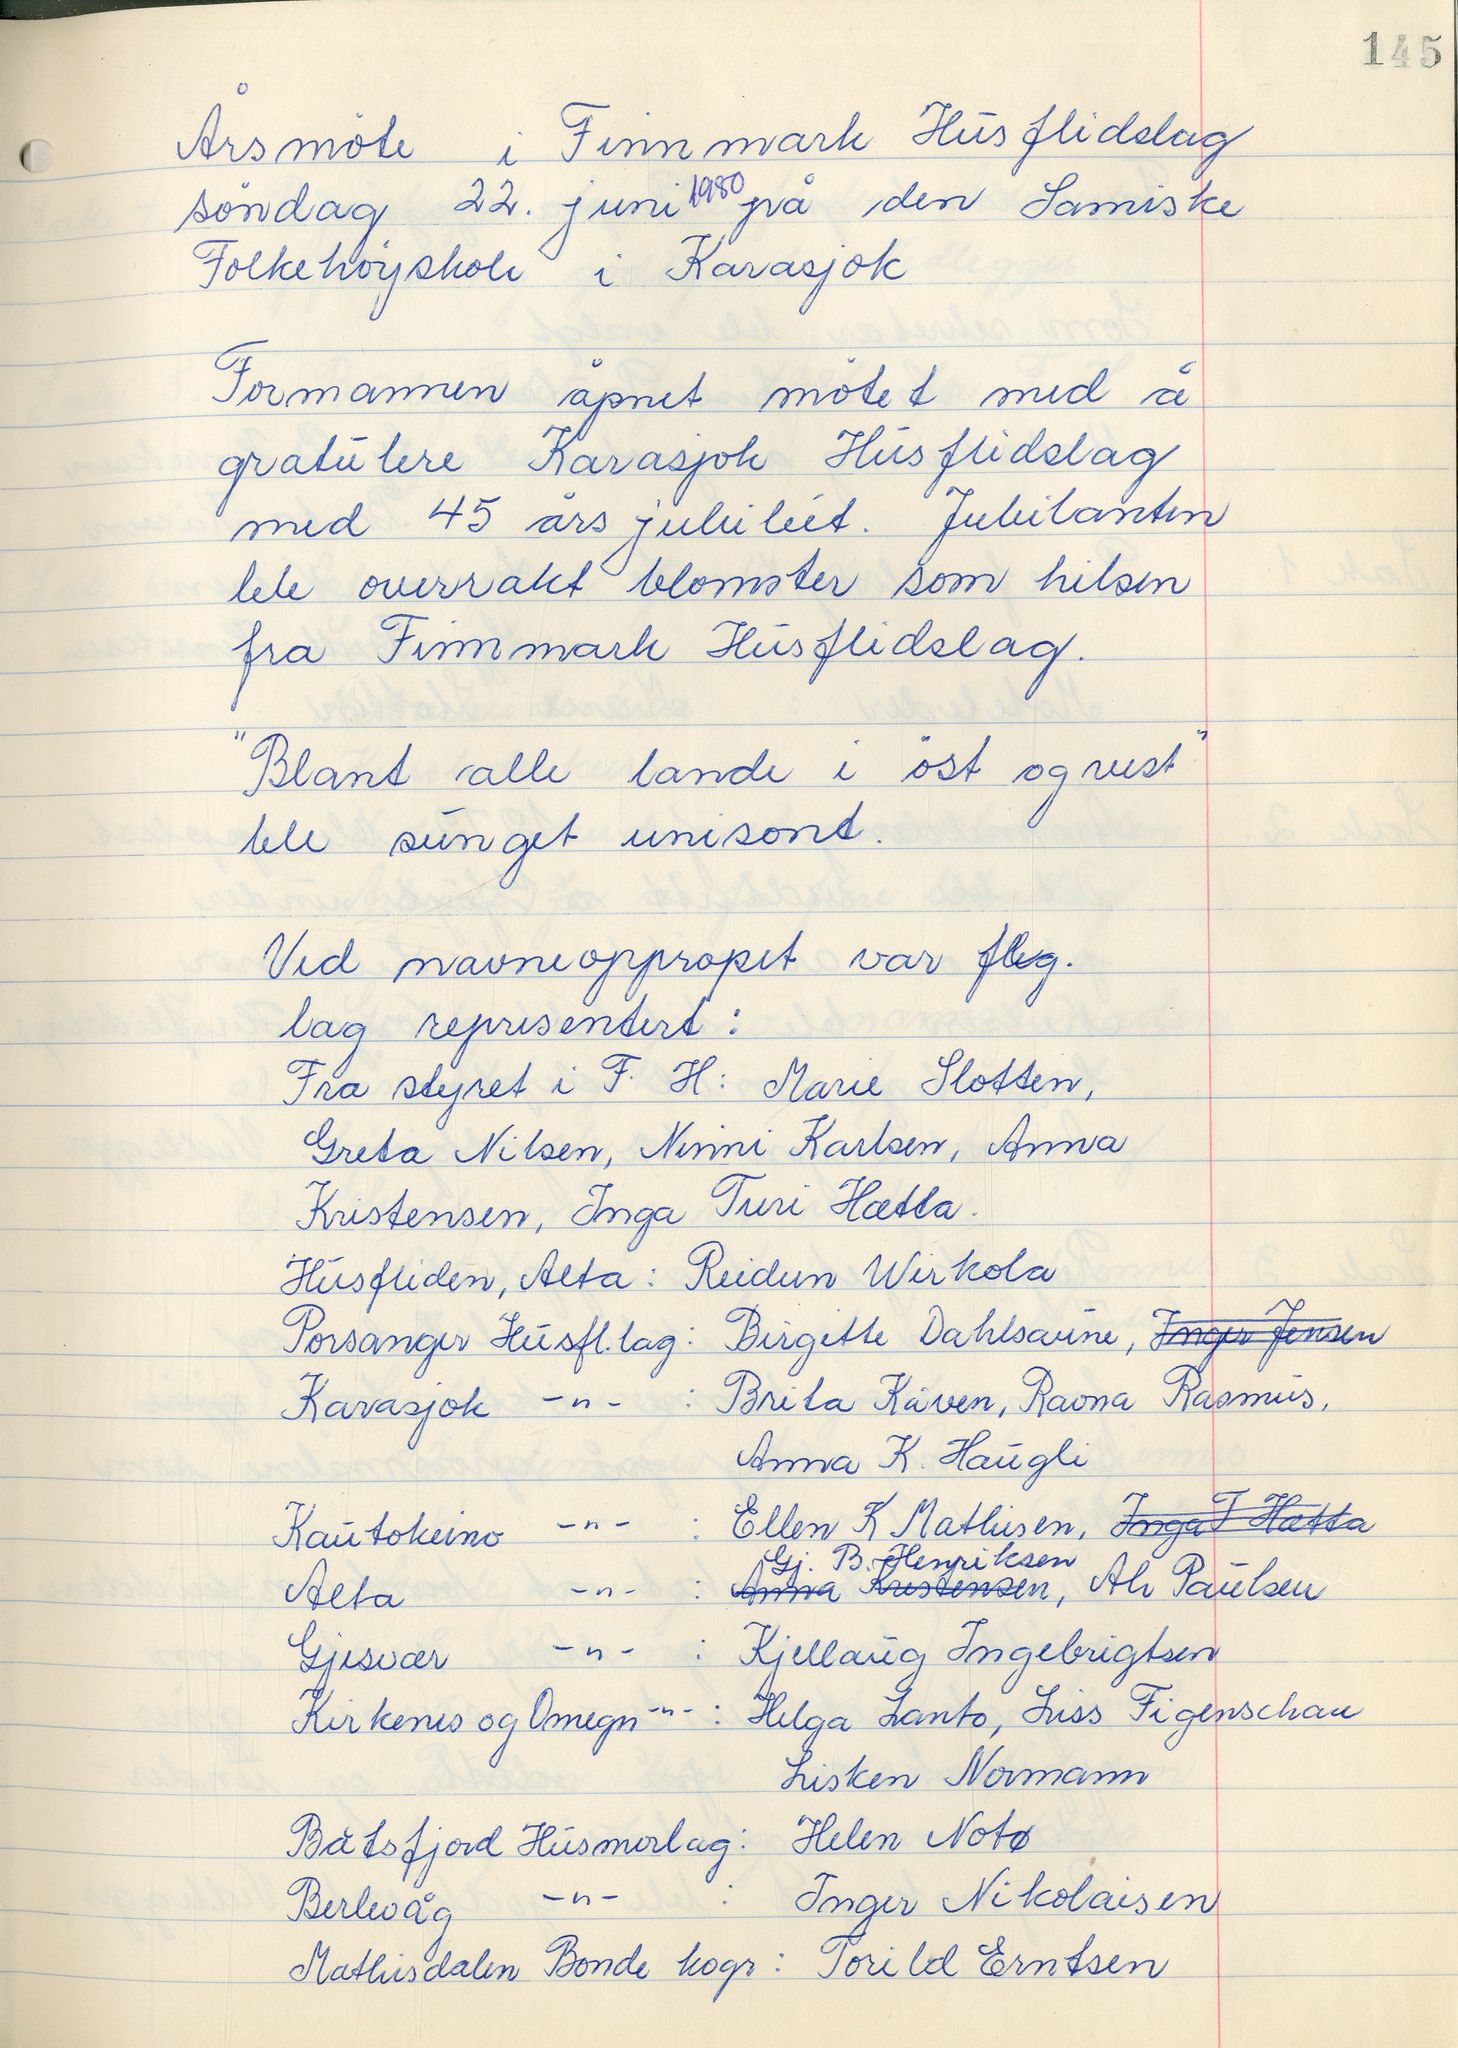 145
Årsmöte i Finnmark Husflidslag
söndag 22. juni 1980 på den Samiske
Folkehöyskole i Karasjok
Formannen åpnet mötet med å
gratulere Karasjok Husflidslag
med 45 års jubileet. Jubilanten
ble overrakt blomster som hilsen
fra Finnmark Husflidslag.
"Blant alle lande i öst og vest"
ble sunget unisont.
Ved navneoppropet var flg.
lag representert:
Fra styret i F. H: Marie Slotten,
Greta Nilsen, Ninni Karlsen, Anna
Kristensen, Inga Turi Hætta.
Husfliden, Alta: Reidun Wirkola
Porsanger Husfl.lag: Birgitte Dahlsaune, Inger Jensen
Karasjok -"- : Brita Kåven, Ravna Rasmus,
Anna K. Haugli
Kautokeino -"- : Ellen K Mathisen, Inga T Hætta
Gj. B. Henriksen
Alta -"- : Anna Kristensen, Ah Paulsen
Gjesvær -"- : Kjellaug Ingebrigtsen
Kirkenes og Omegn -"- : Helga Lanto, Liss Figenschau
Lisken Normann
Båtsfjord Husmorlag: Helen Notø
Berlevåg -"- : Inger Nikolaisen
Mathisdalen Bonde kogr: Torild Erntsen